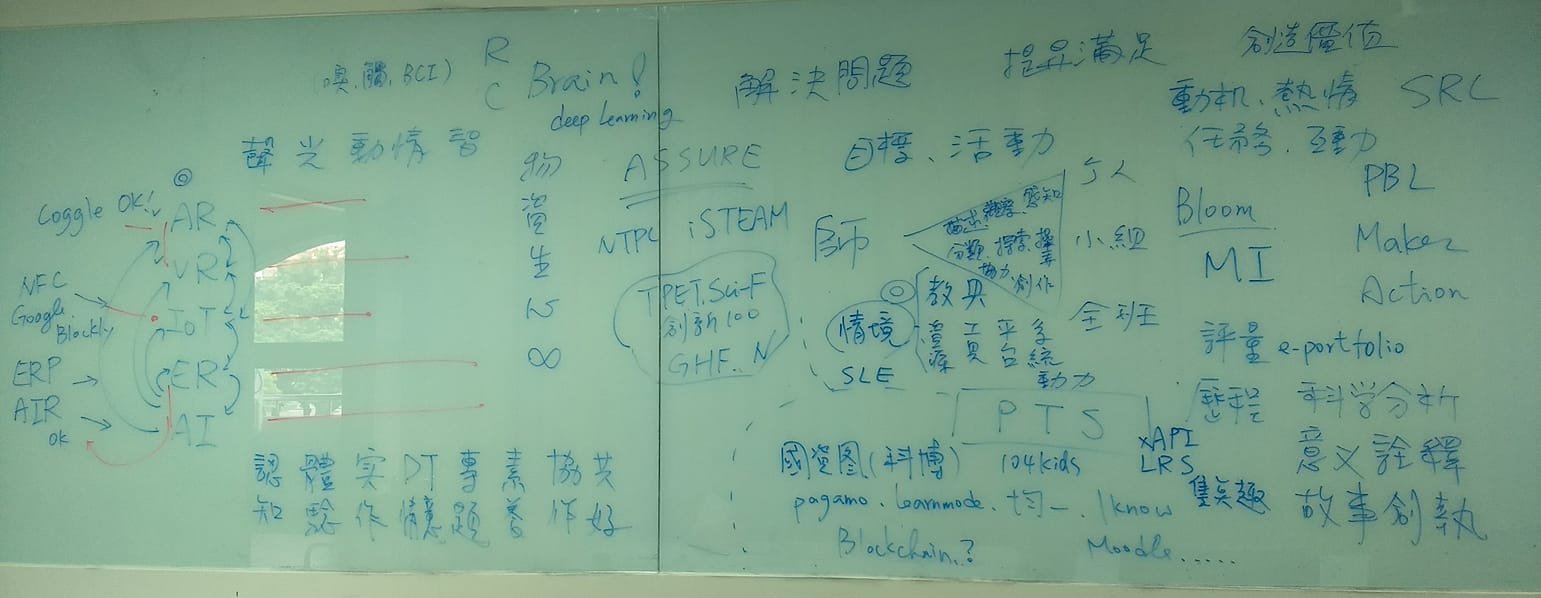 (嗅.觸.BCI)
R
C
Brain!
deep learning
聲光動情智
Coggle OK!
AR
VR
NFC
Google
Blockly
IoT
ERP
ER
AIR
OK
AI
物
資
生
心
∞
認知
體驗
实作
DT情意
專題
素養
協作
共好
ASSURE
NTPC
iSTEAM
TPET.Sci-F
創新100
GHF..N
解決問題
提昇滿足
創造價值
動机、熱情
SRL
任务、互動
目標、活動
師
描述
觀察
感知
分類
探索
協力
創作
个人
小組
全班
情境
SLE
教具
資源
工具
平台
系統
動力
PTS
Bloom
MI
PBL
Maker
Action
評量 e-portfolio
歷程
科学分析
意义詮釋
故事創執
國資图(科博)
104kids
xAPI
LRS
pagamo.learnmode.均一.1know
隻矣趣
Blockchain.?
Moodle.....